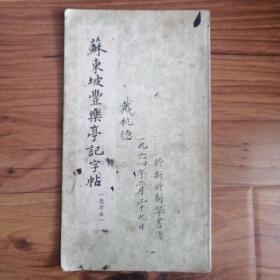 蘇東坡豐樂亭記字帖
(選字本)
於新沂新華書店
一九六四年二月二十九日